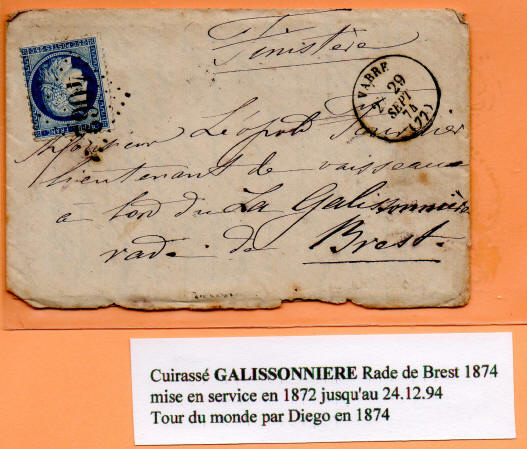 Finistère
VABRE
2E 29
SEPT
74
(77)
Monsieur Léopold Fournier
lieutenant de vaisseau
à bord du La Galissonnière
rade de Brest.
Cuirassé GALISSONNIERE Rade de Brest 1874
mise en service en 1872 jusqu'au 24.12.94
Tour du monde par Diego en 1874